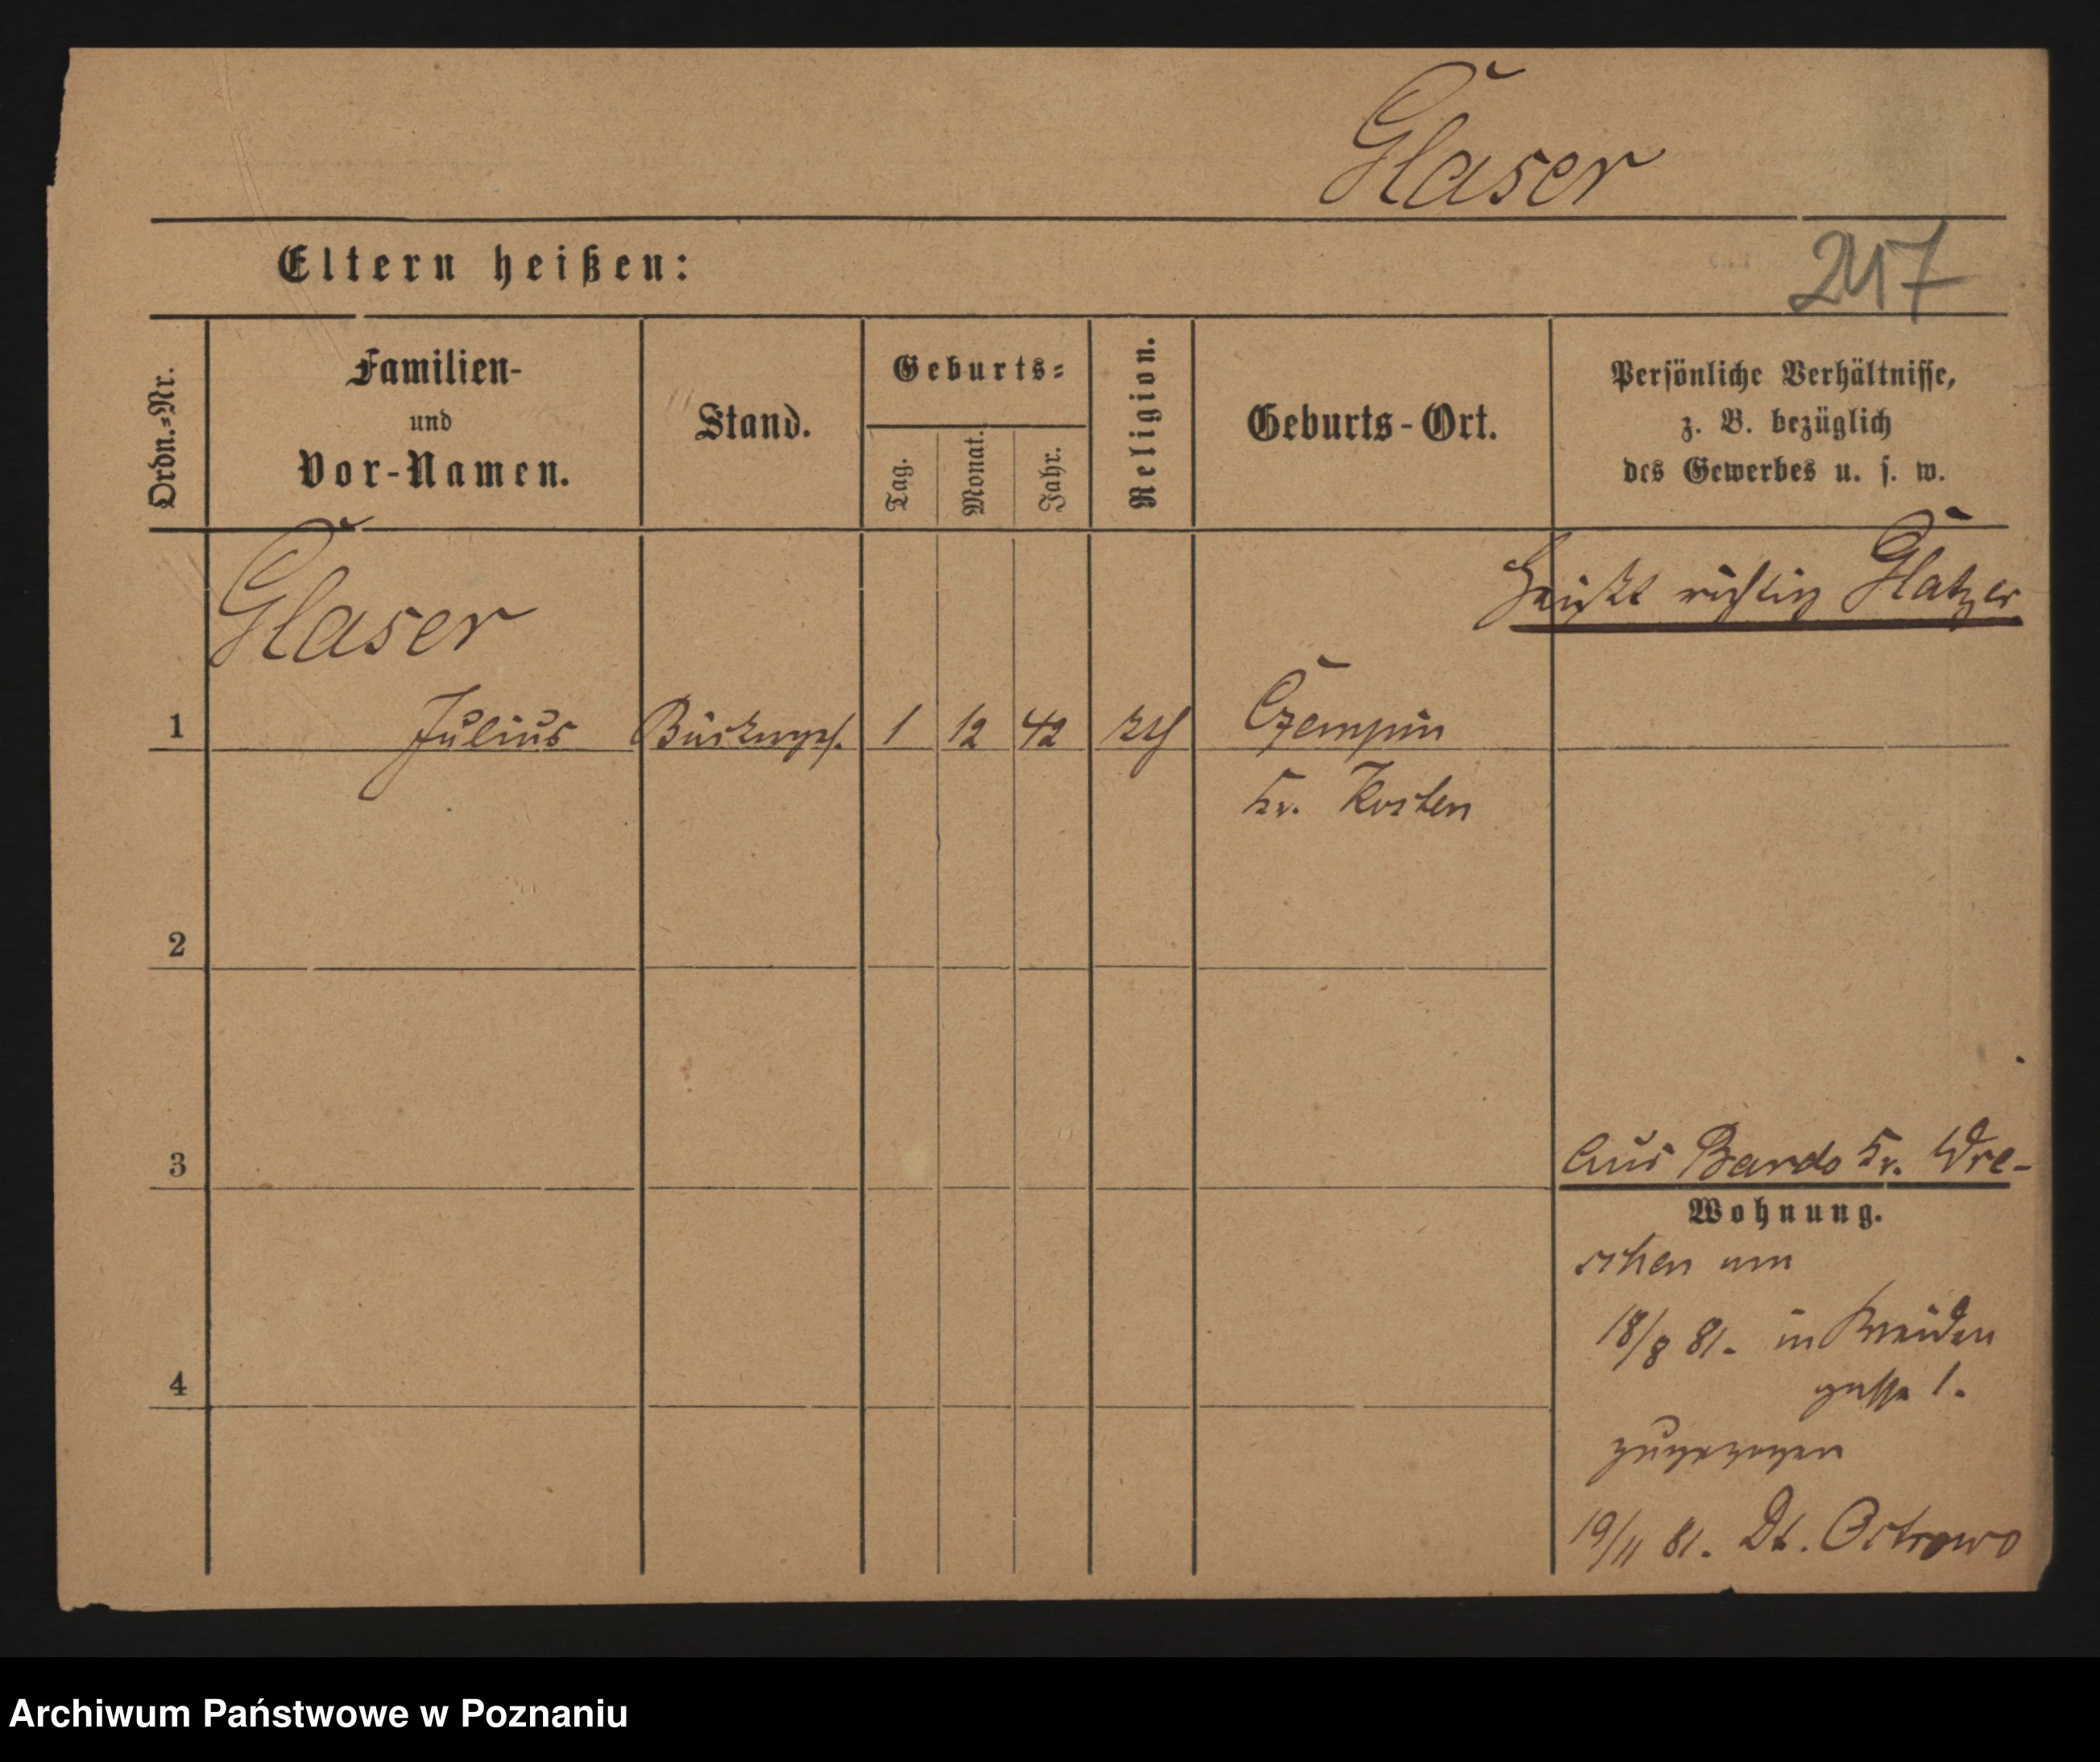 Glaser
Eltern heißen:
247
Ordn.=Nr.
Familien-
und
Vor-Namen.
Stand.
Geburts=
Tag.
Monat.
Jahr.
Religion.
Geburts-Ort.
Persönliche Verhältnisse,
z. B. bezüglich
des Gewerbes u. s. w.
Heißt richtig Glatzer
Glaser
1 Julius 1 12 42 Czempin
Kr. Kosten
2
3
Aus Bardo Kr. Wre-
Wohnung.
schen am
18/8 81. in
gasse 1.
4
zugezogen
19/11 81. Dt. Ostrowo
Archiwum Państwowe w Poznaniu